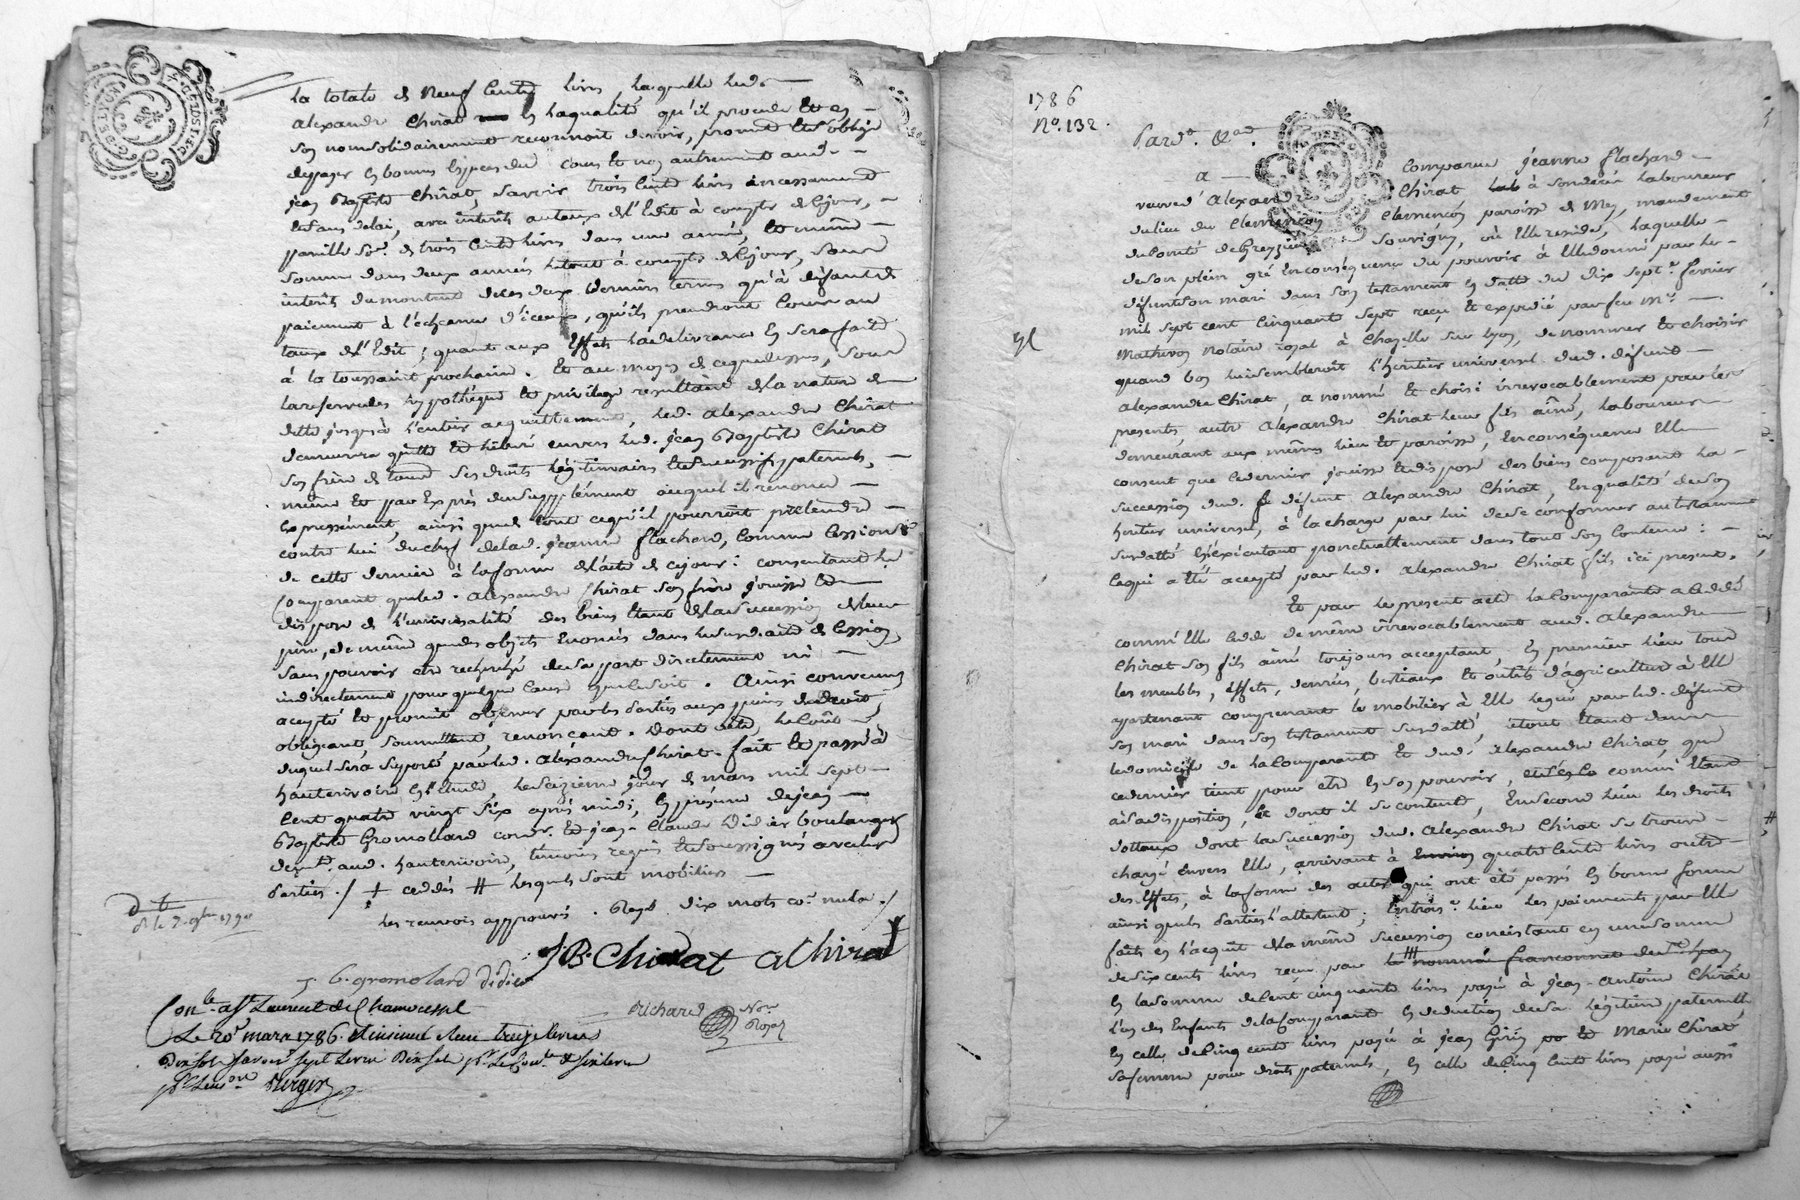 la totale de neuf cents livres laquelle led.
alexandre Chirat en la qualité qu'il procede et en
son nom solidairement reconnoit devoir, promet et s'oblige
de payer en bonnes especes du cours et non autrement aud.
jean Baptiste Chirat, savoir trois cents livres incessament
et sans delai, avec interêts au taux de l'Edit à compter de ce jour,
pareille so.e de trois cents livres dans une année, et même
somme dans deux années le tout à compter de ce jour, sans
interêts du montant de ces deux derniers termes qu'à défaut de
paiement à l'echeance d'iceux, qu'ils prendront cours au
taux de l'Edit; quant aux Effets la délivrance en sera faite
à la toussaint prochaine. Et au moyen de ce que dessus, sous
la reserve des hypothèque et privilege resultant de la nature de
dette jusqu'à l'entier acquittement, led. alexandre Chirat
demeurera quitte et libéré envers led. jean Baptiste Chirat
son frère de tous ses droits légitimaires et successifs paternels,
même et par Exprès du supplément auquel il renonce
expressément, ainsi que de tout ce qu'il pourroit prétendre
contre lui du chef de lad. jeanne flachard, comme cession.re
de cette derniere à la forme de l'acte de ce jour: consentant le
Comparant que led. alexandre Chirat son frère jouisse et
dispose de l'universalité des biens étant de la succession de leur
pere, de même que des objets énoncés dans le susd. acte de cession,
sans pouvoir etre recherché de sa part directement ni
indirectement pour quelque cause que ce soit. Ainsi convenu
accepté et promis observer par les parties aux peines de droit,
obligeant, soumettant, renonçant. Dont acte, le coût
duquel sera suporté par led. alexandre Chirat. fait et passé à
hauterivoire en l'Etude, le seizieme jour de mars mil sept
cent quatre vingt six après midi, en présence de jean
Baptiste Gromollard cordr. et jean-Claude Didier boulanger
dem.ts aud. hauterivoire, témoins requis et soussignés avec les
parties ./ + cedés # lesquels sont mobiliers
les renvois approuvés. Rayé dix mots co.e nuls ./
JB. Chirat a Chirat
j b. gromolard didier
Richard No.re Royal
Con.lé à St Laurent de Chamousset
Le 20 mars 1786.
1786
N.o 132.
Pard.t &.a
a Comparu jeanne flachard
veuve d'Alexandre Chirat à son decès laboureur
du lieu du Clemençon paroisse de Meys, mandement
Souvigny, où Elle reside, laquelle
de son plein gré En conséquence du pouvoir à Elle donné par le
défunt son mari dans son testament en datte du dix sept.e fevrier
mil sept cent cinquante sept reçu et expedié par feu M.e
Mathevon notaire royal à Chazelle sur Lyon, de nommer et choisir
quand bon lui sembleroit l'héritier universel dud. défunt
alexandre Chirat, a nommé et choisi irrevocablement par les
presents, autre alexandre Chirat leur fils aîné, laboureur
demeurant aux mêmes lieu et paroisse, En conséquence Elle
consent que ce dernier jouisse et dispose des biens composant la
succession dud. défunt alexandre Chirat, En qualité de son
heritier universel, à la charge par lui de se conformer au testament
susdatté en exécutant ponctuellement dans tout son contenu:
ce qui a été accepté par led. alexandre Chirat fils ici présent.
Et par le present acte la Comparante a cédé
comm'Elle cede de même irrévocablement aud. alexandre
Chirat son fils aîné toujours acceptant, En premier lieu tous
les meubles, effets, denrées, bestiaux et outils d'agriculture à Elle
appartenant comprenant le mobilier à Elle legué par led. défunt
son mari dans son testament susdatté, le tout étant dans
le domicile de la Comparante et dud. alexandre Chirat, que
ce dernier tient pour etre en son pouvoir, comm'étant
à sa disposition, et dont il se contente, En second lieu les droits
dottaux dont la succession dud. alexandre Chirat se trouve
chargé envers Elle, arrivant à quatre cents livres outre
des effets, à la forme des actes qui ont été passés en bonne forme
ainsi que les Parties l'attestent; En trois.e lieu les paiements par Elle
faits en l'acquit de la même succession consistant en une somme
de six cents livres reçue par
en la somme de cent cinquante livres payée à jean-Antoine Chirat
l'un des Enfants de la Comparante en deduction de sa légitime paternelle
en celle de cinq cents livres payée à jean et Marie Chirat
sa femme pour droits paternels, en celle de cinq cents livres payée aussi